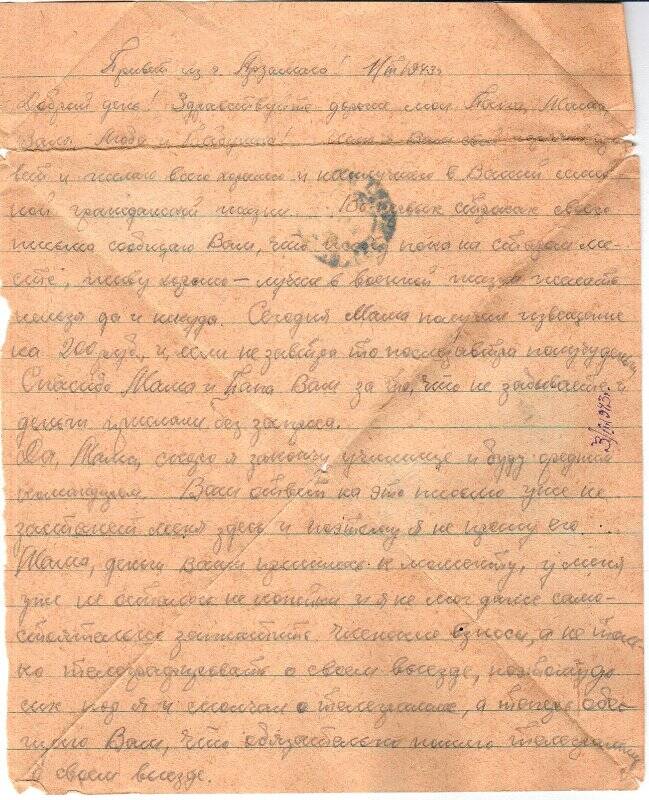 Привет из г. Арзамаса! 1/III 1943г
Добрый день! Здравствуйте дорогие мои Папа, Мама
Валя, Люба и Бабушка! Шлю я Вам свой горячий при-
вет и желаю всего хорошего и наилучшего в Вашей
ной гражданской жизни. В первых строках своего
письма сообщаю Вам, что пока на старом ме-
сте, живу хорошо – лучше в военной жизни желать
нельзя да и некуда. Сегодня Мама получил извещение
на 200 руб., и если не завтра то послезавтра получу деньги
Спасибо Мама и Папа Вам за то, что не забываете и
деньги прислали без запроса.
Да, Мама, скоро я закончу училище и буду средним
командиром. Ваш ответ на это письмо уже не
застанет меня здесь и поэтому я не прошу его
Мама, деньги Ваши пришлись к моменту, у меня
уже не осталось не копейки и я не мог даже само-
стоятельно заплатить членские взносы, а не толь-
ко телеграфировать о своем выезде, поэтому до
сих пор я и молчал о телеграмме, а теперь обе-
щаю Вам, что обязательно пошлю телеграмму
о своем выезде.
3/III 1943г.